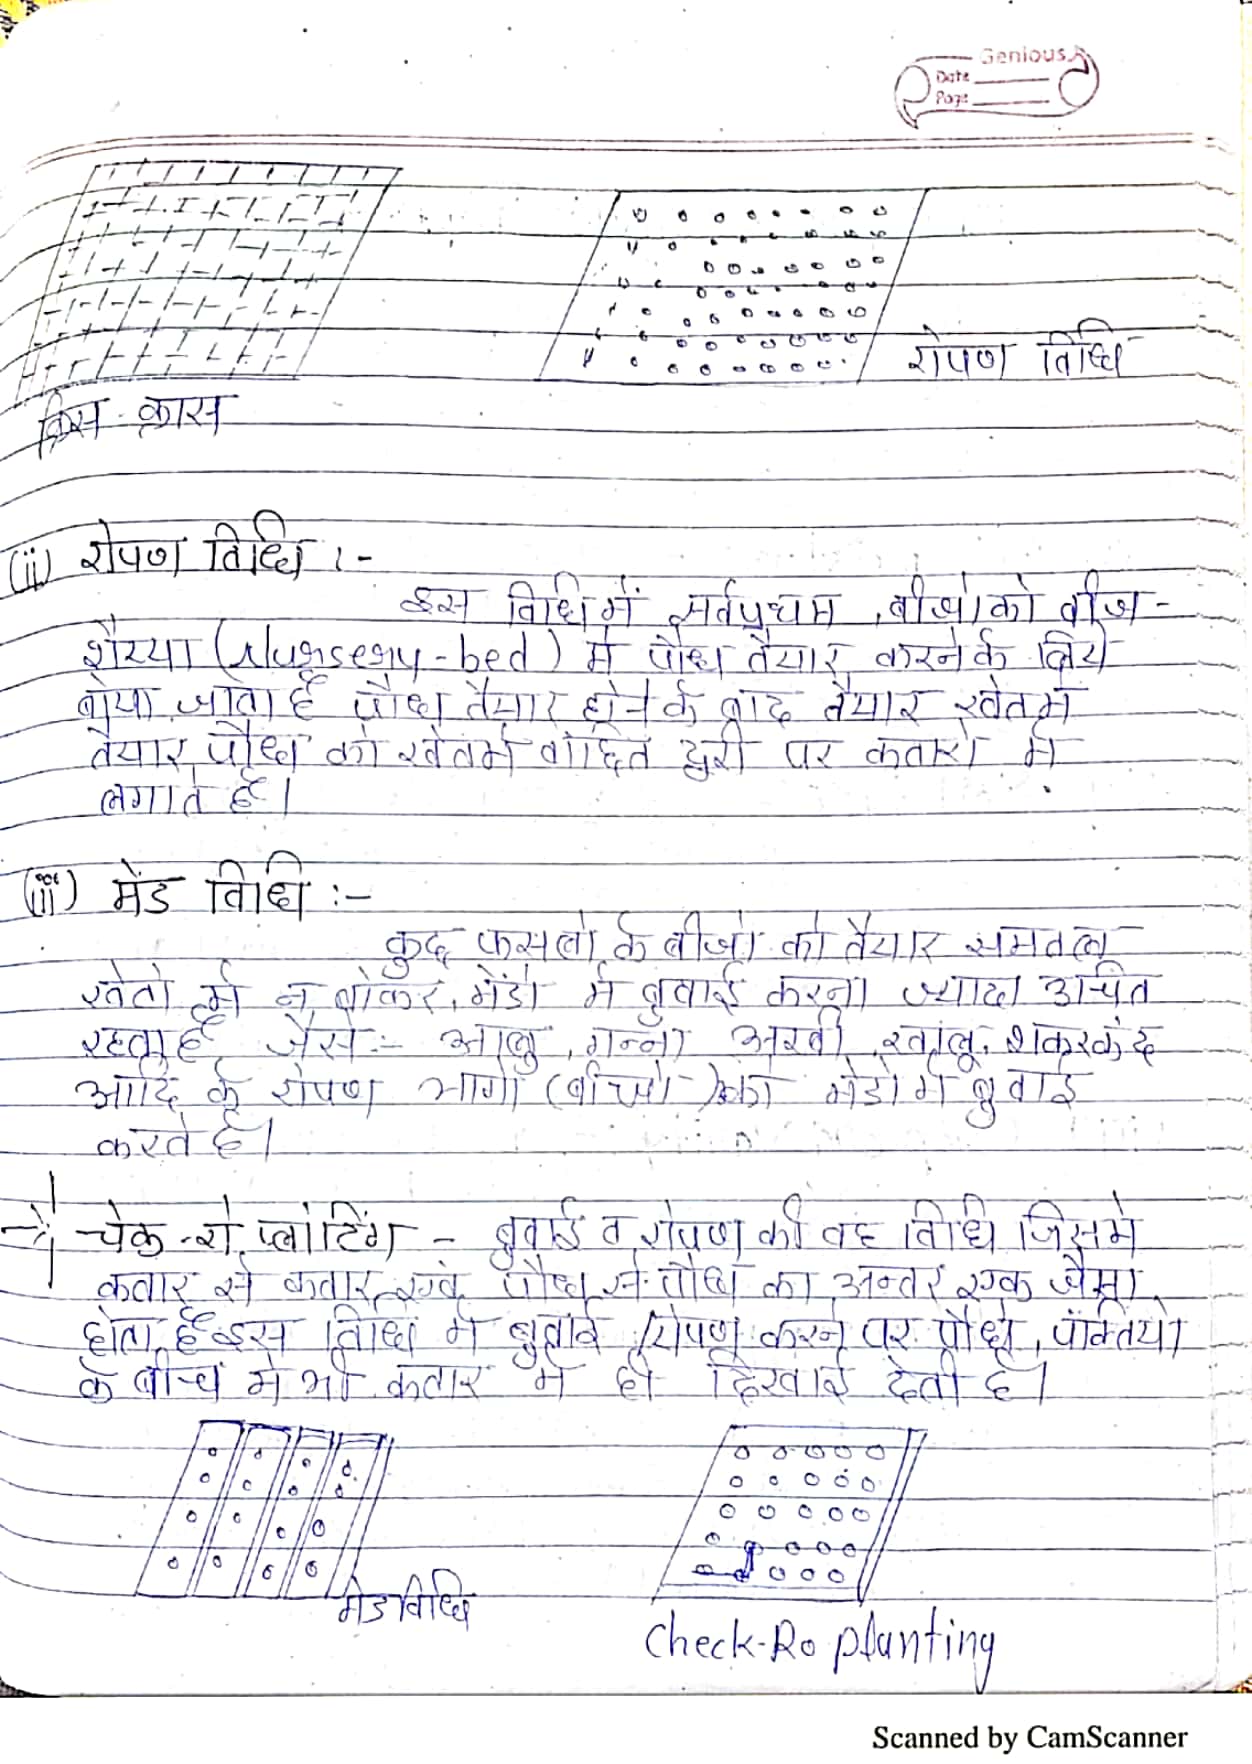 Genious
Date
Page
रोपण विधि
क्रिस - क्रास
(ii) रोपण विधि :-
इस विधि में सर्वप्रथम बीजो को बीज -
शैय्या (Nursery-bed) में पौध तैयार करने के लिये
बोया जाता है पौध तैयार होने के बाद तैयार खेत में
तैयार पौध को खेत में वांछित दुरी पर कतारो में
लगाते हैं।
(iii) मेंड विधि :-
कुछ फसलो के बीजो को तैयार समतल
खेतो में न बोकर, मेंडो में बुवाई करना ज्यादा उचित
रहता है जैसे :- आलु, गन्ना अरवी, रतालू, शकरकंद
आदि के रोपण भागो (बीजो) को मेडो में बुवाई
करते हैं।
→ चेक -रो प्लांटिंग - बुवाई व रोपण की वह विधि जिसमे
कतार से कतार एवं पौध से पौध का अन्तर एक जैसा
होता है इस विधि में बुवाई /रोपण करने पर पौधे, पंक्तियो
के बीच मे भी कतार में ही दिखाई देती है।
मेडविधि
Check-Ro planting
Scanned by CamScanner